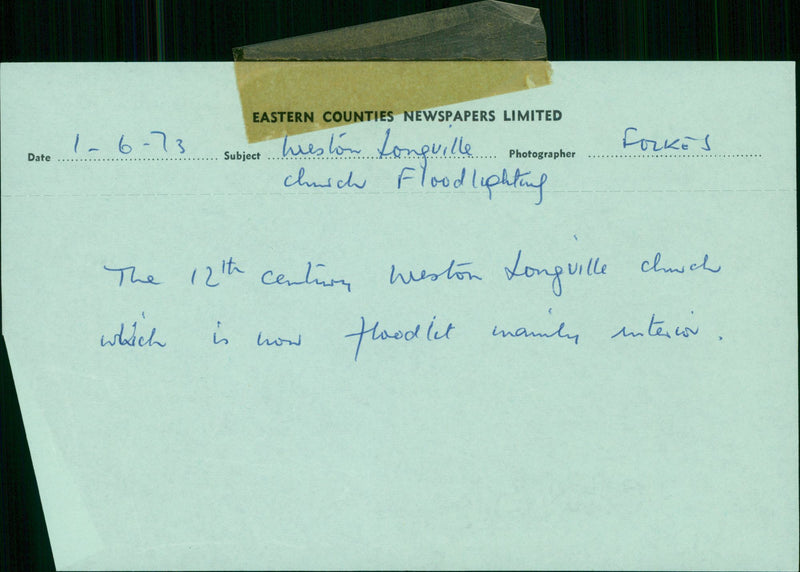 EASTERN COUNTIES NEWSPAPERS LIMITED
Date 1-6-73 Subject Weston Longville Photographer FOLKES
church Floodlighting
The 12th century Weston Longville church
which is now floodlit mainly interior.